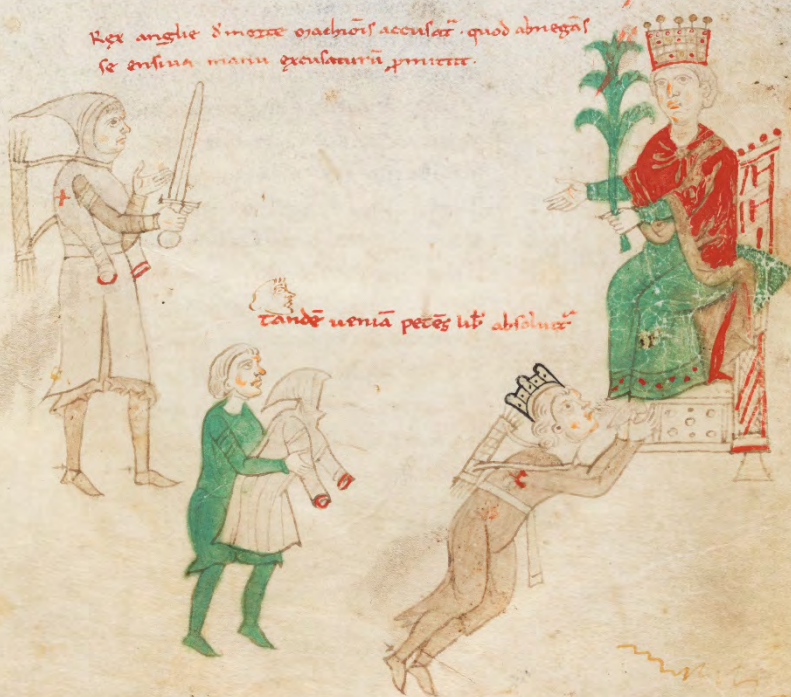 Rex anglie d' morte marchiōis accusat᷑. quod abnegās
se ensiua manu excusaturū ꝓmittit.
tandē ueniā petēs lib̄ absoluit᷑